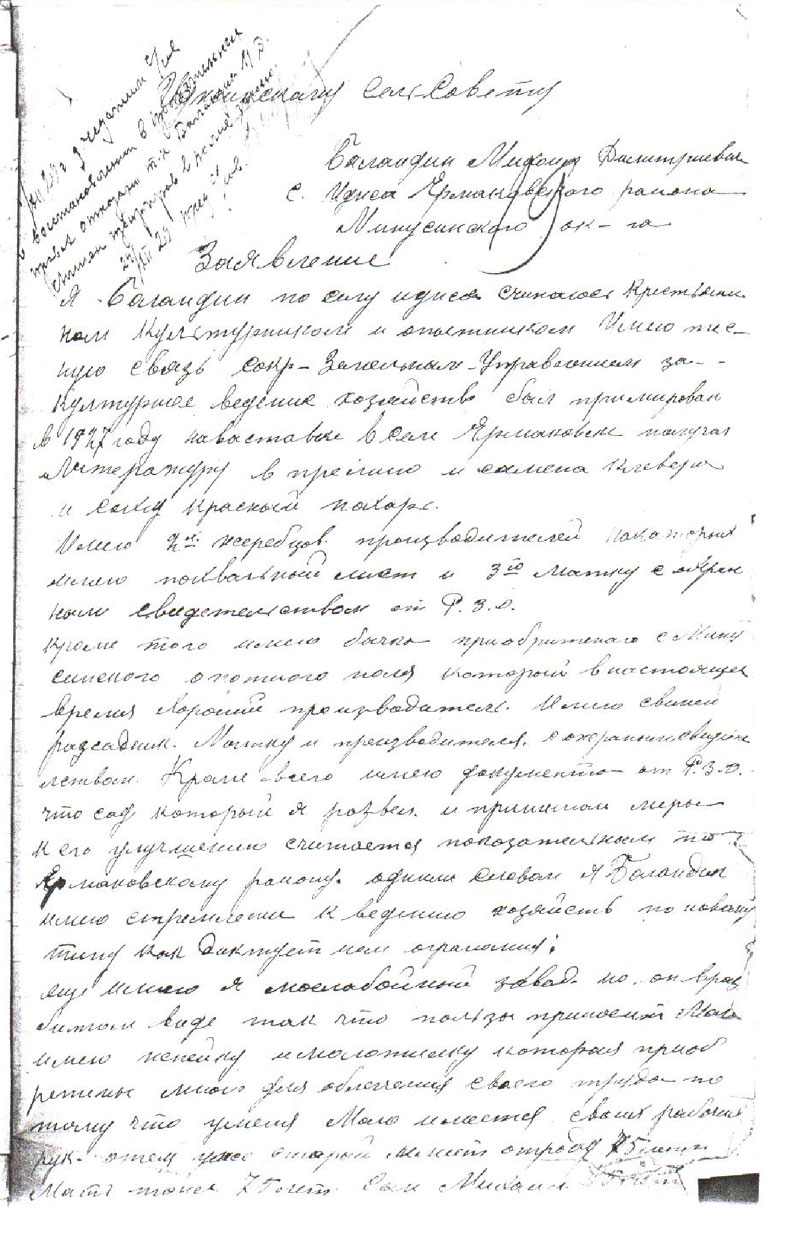 сельсовету
Баландин Михаил Дмитриевич
с. Идиса Ермаковского района
Минусинского ок-га
Заявление
Я Баландин по селу идиса считаюсь крестьяни
ном культурником и опытником Имею тес-
ную связь сокр-Земельным-Управлением за-
культурное ведение хозяйство был примирован
в 1927 году навыставке в селе Ермаковск получал
Литературу в премию и семена клевера
и соху красный пахарь.
Имею 2х жеребцов производителей накоторых
имею похвальный лист и 3ю матку с охран
ным свидетельством от Р.З.О.
Кроме того имею бычка приобритенаго с Мину
синского опотного поля который внастоящее
время хороший производитель. Имею свиней
разсадник. Матку и производителя. сохранным свидете
льствам Кроме всего имею документ от Р.З.О.
что сад который я развел и принимаю меры
к его улучшению считается показательным по
Ермаковскому району. одним словам я Баландин
имею стремление к ведению хозяйств по новаму
типу как диктует нам агрономия;
еще имею я маслобойный завод но он в раз
битом виде так что пользы приносит Мало
имею и молотилку которая приоб
ретины мною для облегчения своего труда по
тому что уменя Мало имеется своих рабочих
рук- отец уже старый имеет отроду 75 лет
Мать тоже 75 лет. Сын Михаил